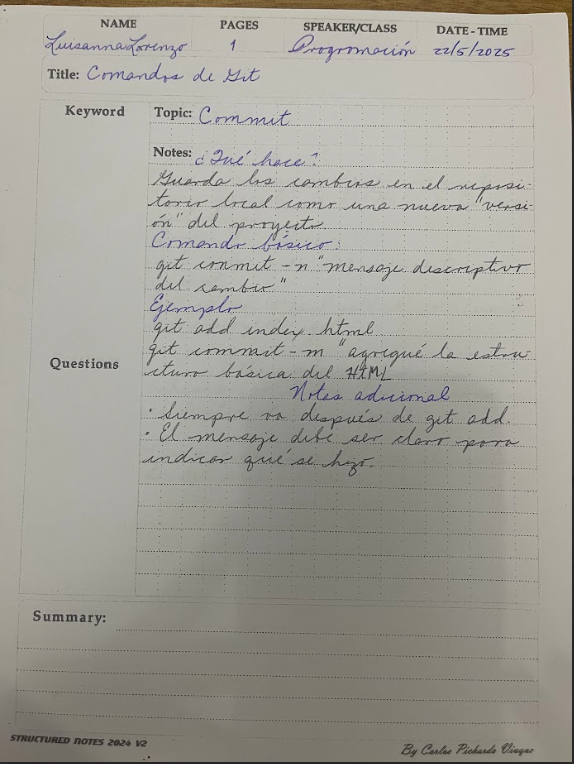 NAME PAGES SPEAKER/CLASS DATE - TIME
Luisanna Lorenzo 1 Programación 22/5/2025
Title: Comandos de Git
Keyword
Topic: Commit
Notes: ¿Qué hace?
Guarda los cambios en el reposi-
torio local como una nueva "versi-
ón" del proyecto.
Comando básico:
git commit -n "mensaje descriptivo
del cambio"
Ejemplo
git add index.html
git commit -m "agregué la estru
ctura básica del HTML
Questions
Notas adicional
• Siempre va después de git add.
• El mensaje debe ser claro para
indicar qué se hizo.
Summary:
STRUCTURED NOTES 2024 V2
By Carlos Pichardo Viuque